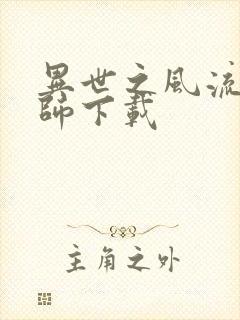 異世之風流
師下載
主角之外